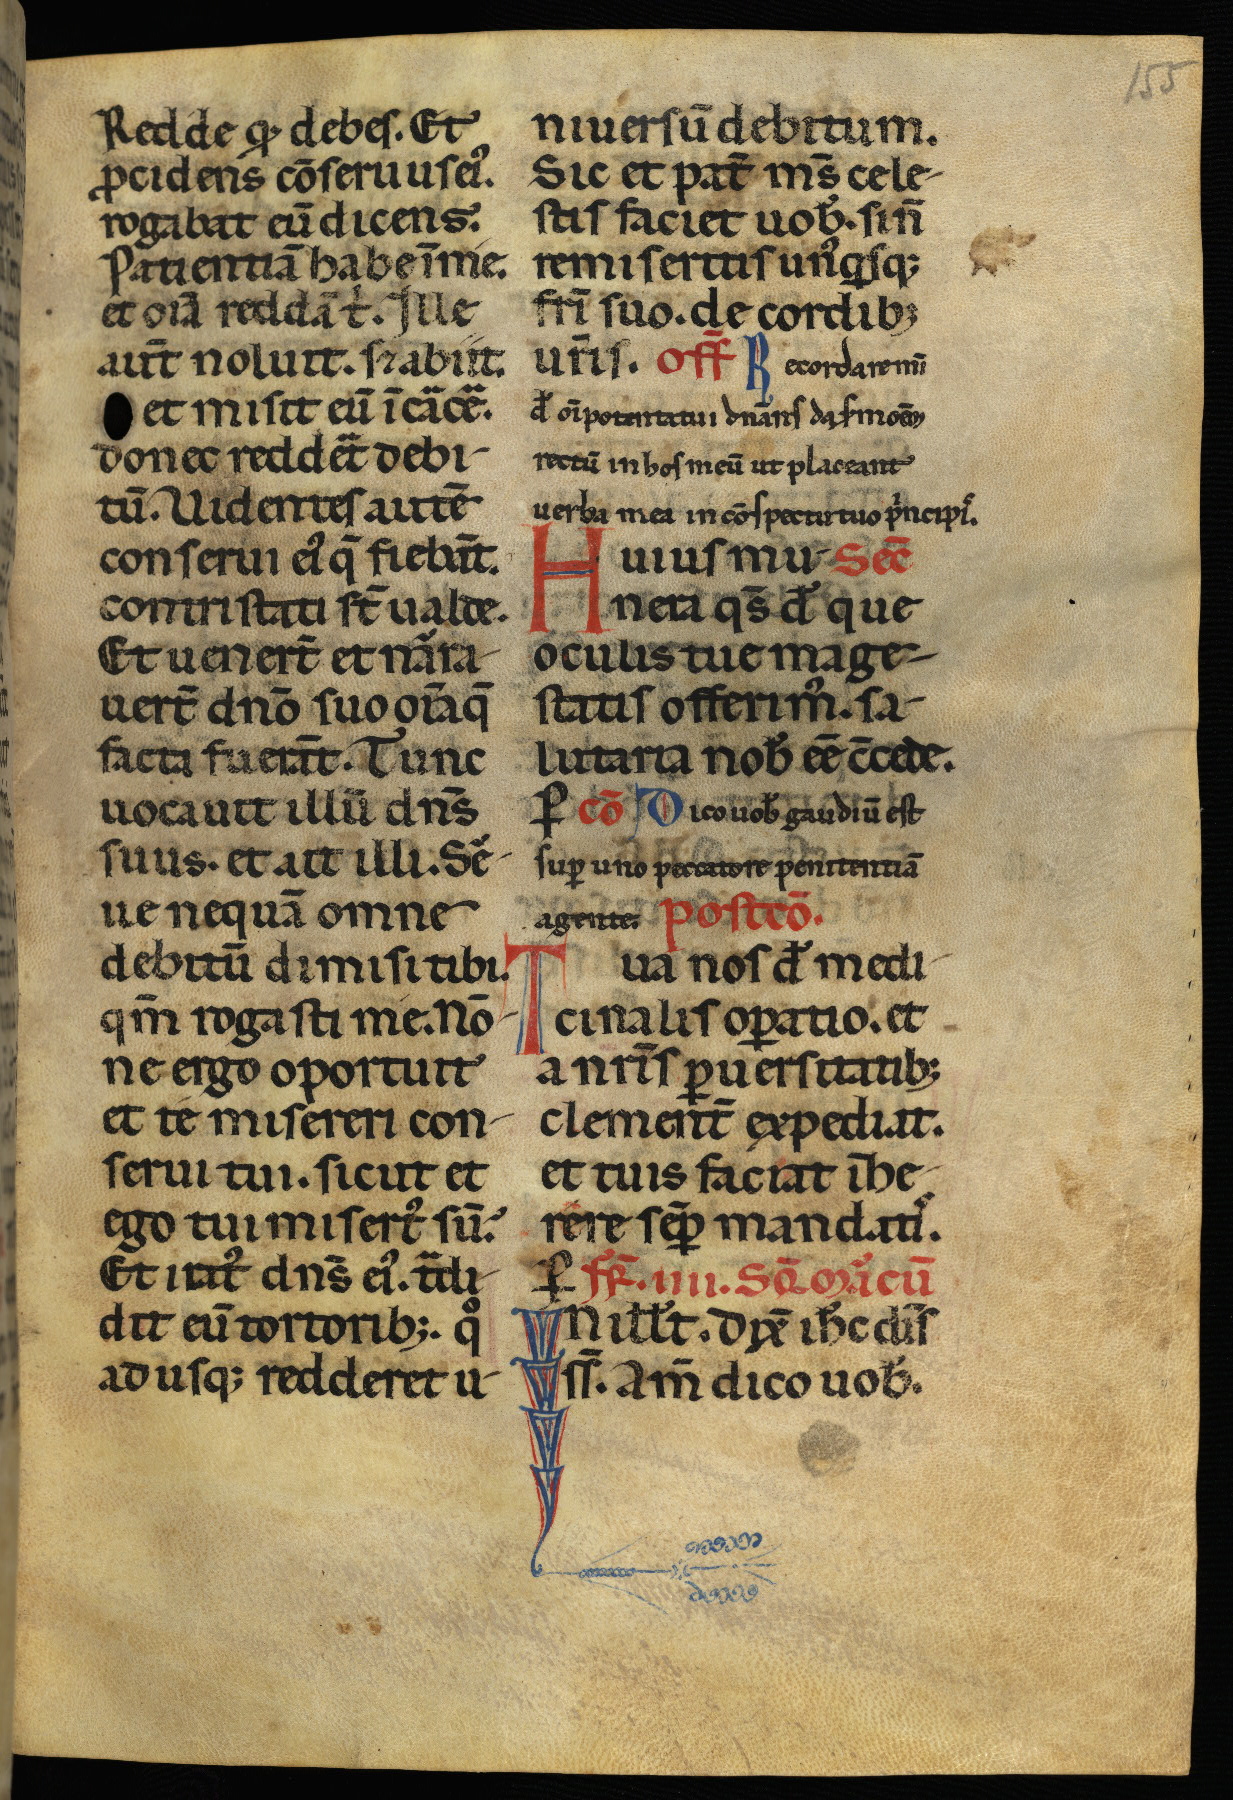 155
Redde qd̕ debes. Et
p̱cidens cōseruus ei᷒.
rogabat eū dicens.
Patientiā habe ī me.
et oīa reddā t̄. Ille
aut̄ noluit. sꝫ abiit.
et misit eū ī carcē.
donec reddēt debi-
tū. Uidentes autē
conserui ei᷒ q̄ fiebāt.
contristati st̄ ualde.
Et uener̄t et narra-
uer̄t dn̄o suo oīa q̄
facta fuerāt. Tunc
uocauit illū dn̄s
suus. et ait illi. Ser-
ue nequā omne
debitū dimisi tibi.
qm̄ rogasti me. Nō-
ne ergo oportuit
et te misereri con-
serui tui. sicut et
ego tui misert᷒ sū.
Et irat᷒ dn̄s ei᷒. tᷓdi-
dit eū tortoribꝫ. q᷒
adusqꝫ redderet u-
niuersū debitum.
Sic et pat̄ m̄s cele-
stis faciet uob̄. si n̄
remiseritis un᷒qisqꝫ
fr̄i suo. de cordibꝫ
ur̄is. Off̄ Recordare m̄
d̄s oīpotentatui dn̄ans da s̄monē
rectū in hos meū ut placeant
uerba mea in cōspectu tuo pͥncipis.
Huius mu- Sec̄
nera q̄s d̄s que
oculis tue mage-
statis offerim᷒. sa-
lutaria nob̄ eē c̄cede.
P̱ cō Dico uob̄ gaudiū est
suꝑ uno peccatore penitentiā
agente. postcō.
Tua nos d̄s medi-
cinalis oꝑatio. et
a nr̄is ꝑuersitatibꝫ
clement̄ expediat.
et tuis faciat īhe-
rere sēꝑ mandatis.
P̱ fr̄. iiii. Scd̄ marcū
In illo t̄. Dix̄ ihc disc̄
ss̄. Am̄ dico uob̄.